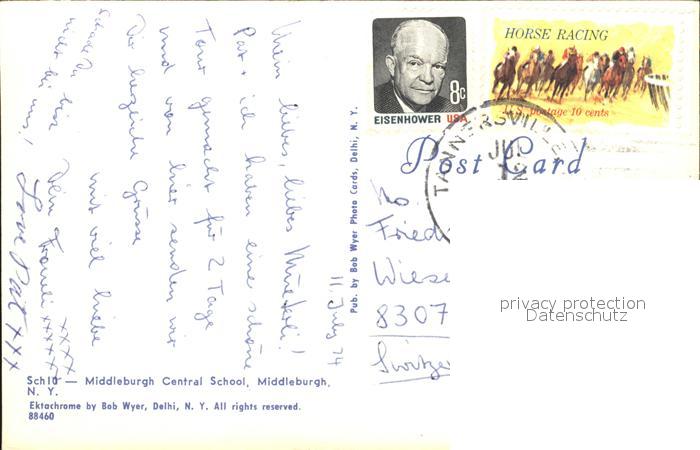 11. July 74
Mein liebes, liebes Muetteli!
Pat + ich haben eine schöne
Tour gemacht für 2 Tage
und von hier senden wir
Dir herzliche Grüsse
mit viel liebe
Schade Du bist
nicht bei uns!
Dein xxxx
xxxxx
Love Pat xxx
EISENHOWER USA
8c
HORSE RACING
US postage 10 cents
TANNERSVILLE
JUL
Post Card
Pub. by Bob Wyer Photo Cards, Delhi, N. Y.
Wiese
8307
privacy protection
Datenschutz
Sch10 — Middleburgh Central School, Middleburgh,
N. Y.
Ektachrome by Bob Wyer, Delhi, N. Y. All rights reserved.
88460